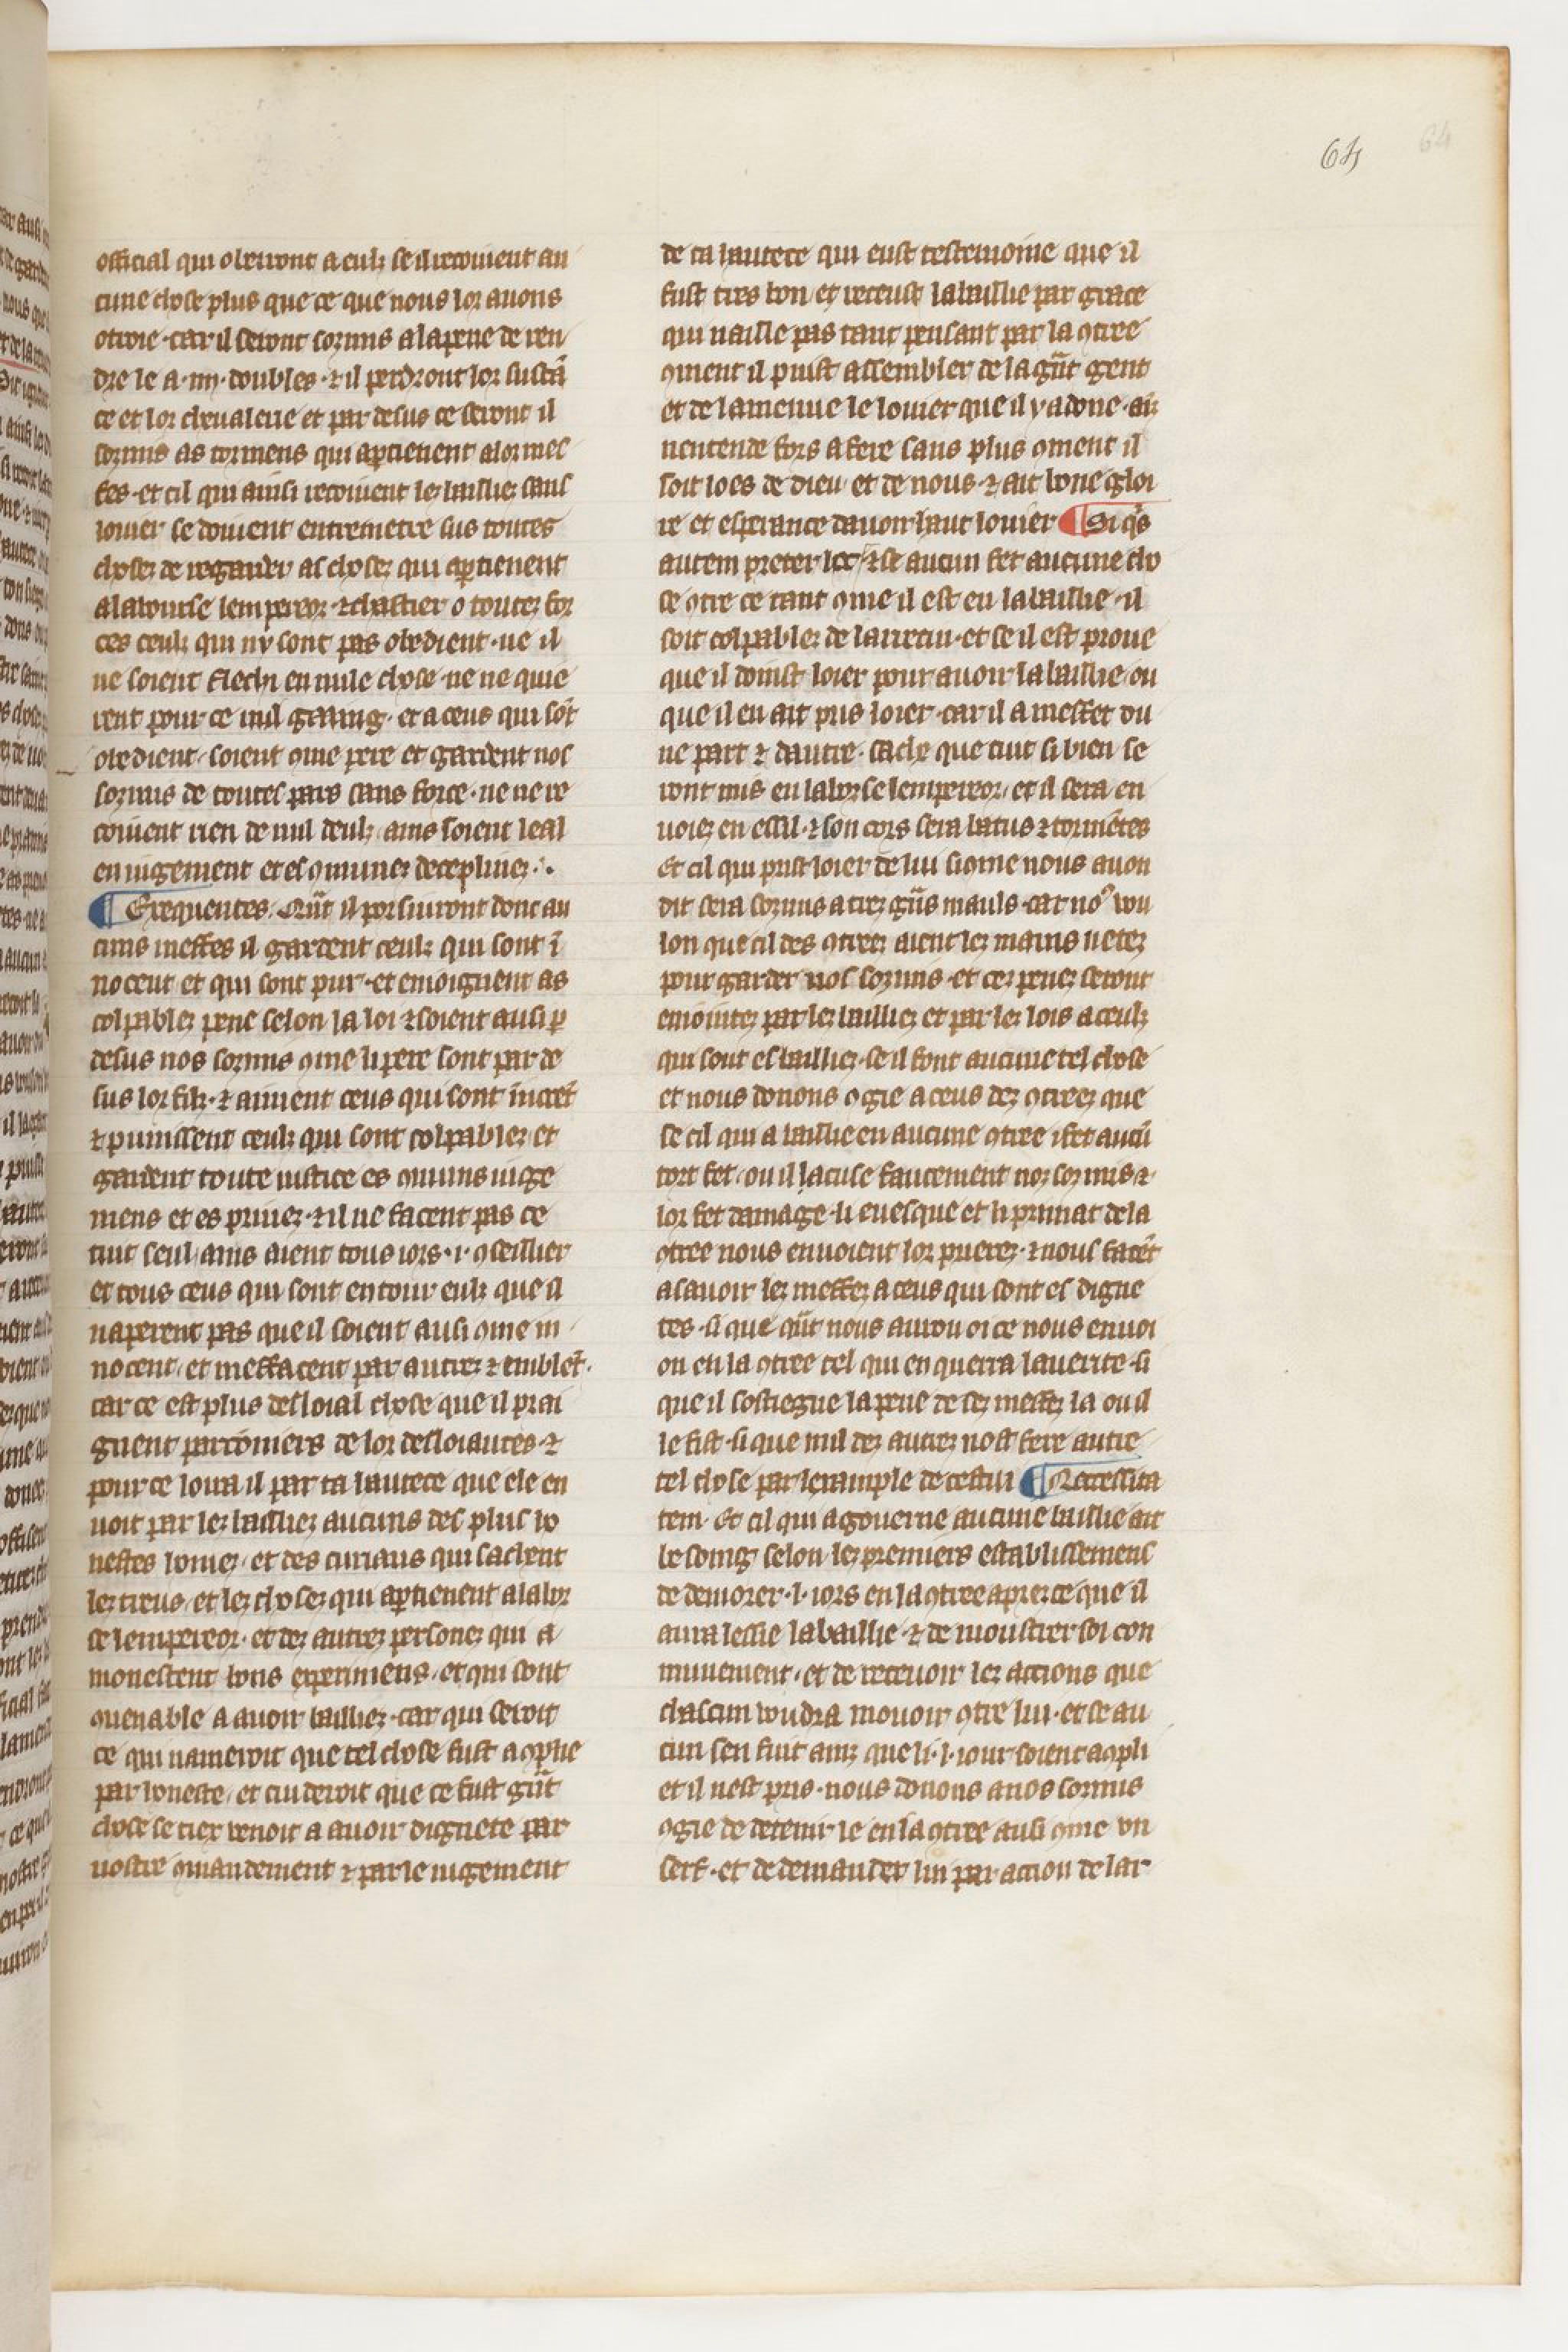 64
64
official qui obeiront a eulz se il recoiuent au
cune chose plus que ce que nous lor auons
otroie · car il seront sozmis a la peine de ren
dre le a · iiij · doubles · ⁊ il perdront lor sustā
ce et lor cheualerie et par desus ce seront il
sozmis as tormens qui apartienent a lor mes
fes · et cil qui ainsi recoiuent lez bailliez sans
louier se doiuent entremetre sus toutes
chosez de regarder as chosez qui apartienent
a la bourse lempereor · ⁊ chastier o toutez for
ces ceulz qui ny sont pas obedient · ne il
ne soient flechi en nule chose · ne ne quie
rent pour ce nul gaaing · et a ceus qui sōt
obedient · soient ɔme pere et gardent nos
sozmis de toutes pars sans force · ne ne re
coiuent rien de nul deulz · ains soient leal
en iugement et es ɔmunez deceplinez ·
¶ Exequentes · Qūt il porsiuront donc au
cuns meffes il gardent ceulz qui sont ī
nocent et qui sont pur · et enioignent as
colpablez peine selon la loi ⁊ soient ausi p
desus nos sozmis ɔme li pere sont par de
sus lor filz · ⁊ aiment ceus qui sont īnocēt
⁊ punissent ceulz qui sont colpablez et
gardent toute iustice es ɔmuns iuge
mens et es priuez · ⁊ il ne facent pas ce
tuit seul · ains aient tous iors · i · ɔseillier
et tous ceus qui sont entour eulz que il
naperent pas que il soient ausi ɔme in
nocent · et meffacent par autrez ⁊ emblēt ·
car ce est plus desloial chose que il prai
gnent parcōniers de lor desloiautes · ⁊
pour ce loura il par ta hautece que ele en
uoit par lez bailliez aucuns des plus ho
nestes homez · et des curiaus qui sachent
lez treus · et lez chosez qui apartienent a la bor
se lempereor · et dez autrez personez qui a
monestent bons experimens · et qui sont
ɔuenable a auoir bailliez · car qui seroit
ce qui nameroit que tel chose fust aɔplie
par honeste · et cuideroit que ce fust gūt
chose se tiex venoit a auoir dignete par
uostre ɔmandement ⁊ par le iugement
de ta hautece qui eust testemoine que il
fust tres bon et receust la baillie par grace
qui naille pas tant pensant par la ɔtree
ɔment il puist assembler de la gūt gent
et de la menue le louier que il y a done · ainz
nentende fors a fere sans plus ɔment il
soit loes de dieu et de nous · ⁊ ait bone gloi
re et esperance dauoir haut louier ¶ Si qis
autem preter hec · ⁊ se aucun fet aucune cho
se ɔtre ce tant ɔme il est en la baillie · il
soit colpablez de larrecin · et se il est proue
que il doinst loier pour auoir la baillie · ou
que il en ait pris loier · car il a meffet du
ne part ⁊ dautre · sache que tuit si bien se
ront mis en la borse lempereor · et il sera en
uoiez en essil · ⁊ son cors sera batus ⁊ tormētes
Et cil qui prist loier de lui si ɔme nous auon
dit sera sozmis a trez gūs mauls · car no9 vou
lon que cil des ɔtreez aient lez mains netez
pour garder nos sozmis · et cez penez seront
eniointez par lez bailliez et par lez lois a ceulz
qui sont es bailliez · se il font aucune tel chose
et nous donons ɔgie a ceus dez ɔtreez que
se cil qui a baillie en aucune ɔtree i fet aucū
tort fet · ou il lacuse faucement noz sozmis ⁊
lor fet damage · li euesque et li primat de la
ɔtree nous enuoient lor prierez · ⁊ nous facēt
a sauoir lez meffez a ceus qui sont es digne
tes · si que qūt nous auron oi ce nous enuoi
on en la ɔtree tel qui en querra la uerite · si
que il sostiegne la peine de sez meffez la ou il
le fist · si que nul dez autrez nost fere autre
tel chose par lexample de cestui ¶ Necessita
tem · Et cil qui a gouerne aucune baillie ait
besoing selon lez premiers establissemens
de demorer · l · iors en la ɔtree aprez ce que il
aura lessie la baillie · ⁊ de moustrer soi con
munement · et de receuoir lez accions que
chascun voudra mouoir ɔtre lui · et se au
cun sen fuit ainz que li · l · iour soient aɔpli
et il nest pris · nous donons a nos sozmis
ɔgie de detenir le en la ɔtree ausi ɔme vn
serf · et de demander lui par accion de lar